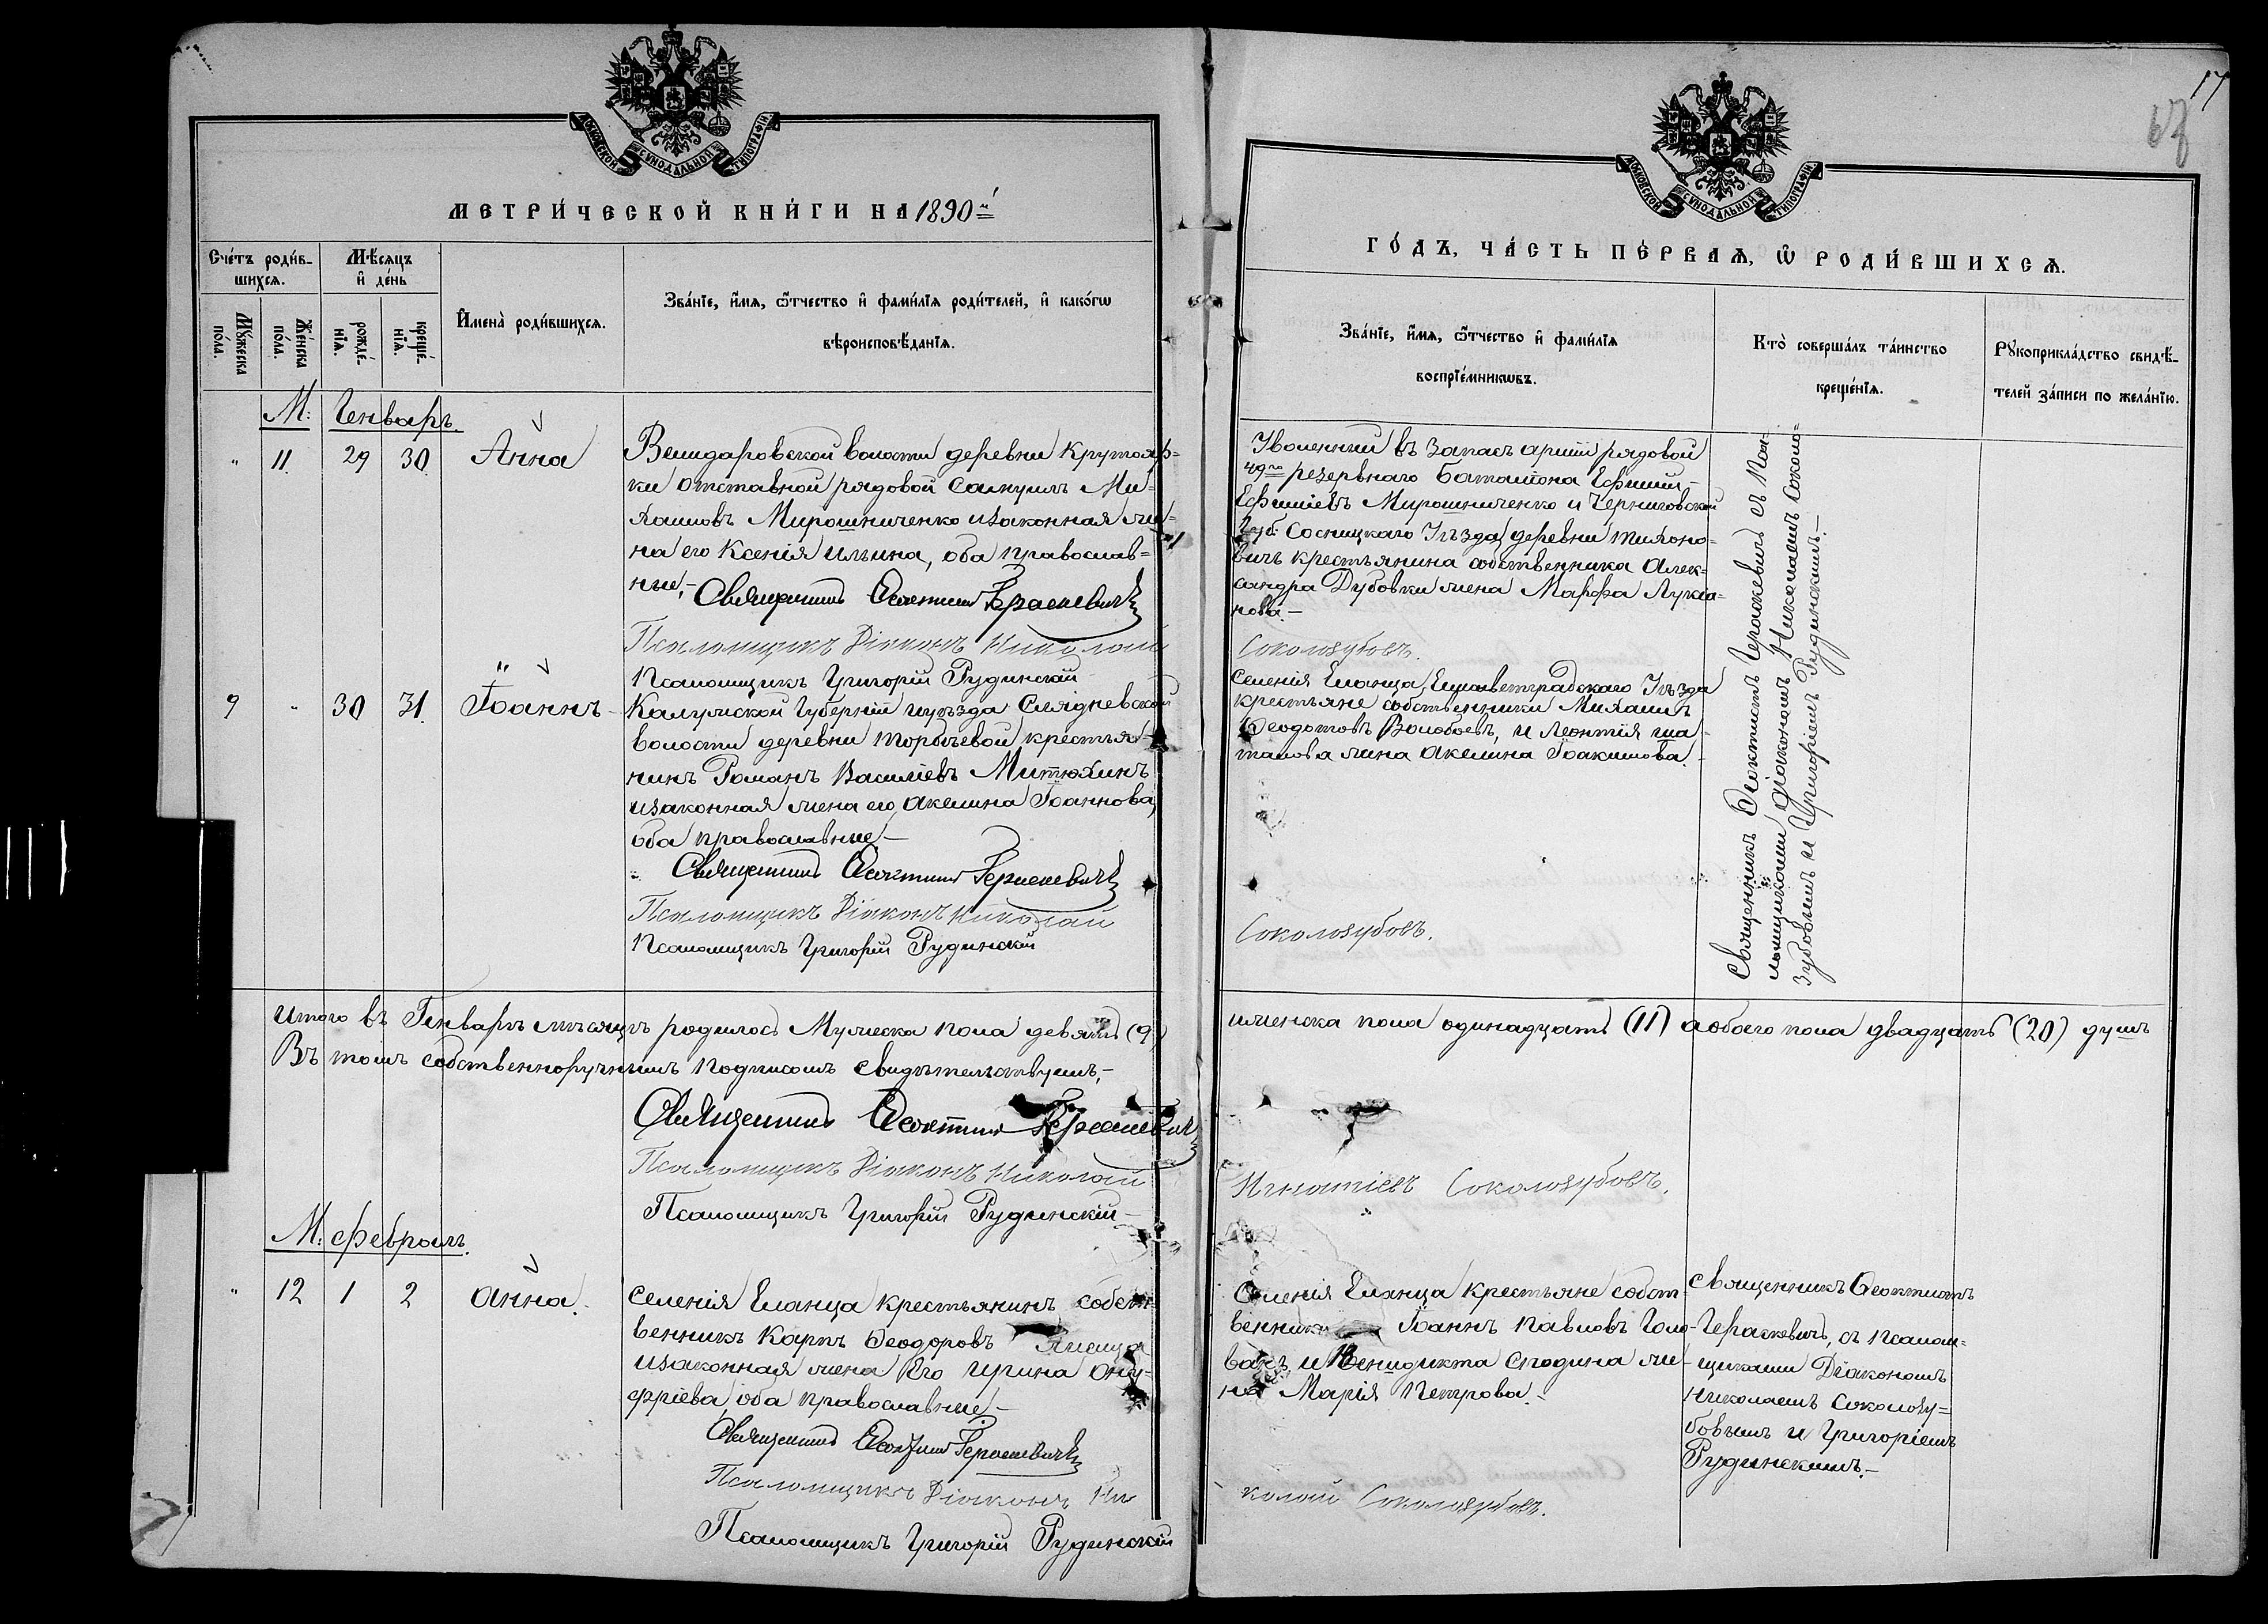 МОСКОВСКОЙ СѴНОДАЛЬНОЙ ТИПОГРАФІИ
МЕТРИ́ЧЕСКОЙ КНИ́ГИ НА 1890й
Сче́тъ роди́в-
шихсѧ.
Мѣ́сяцъ
и҆ де́нь
И҆мена̀ роди́вшихсѧ.
Зва́нїе, и҆́мѧ, ѻ҆́тчество и҆ фами́лїѧ роди́телей, и҆ како́гѡ
вѣроисповѣ́данїѧ.
Мꙋ́жеска
по́ла.
Же́нска
по́ла.
рожде́-
нїѧ.
креще́-
нїѧ.
М: Генварь.
" 11. 29 30. Анна
Веωдаровской волости деревни Крутояр-
ки отставной рядовой Самуилъ Ми-
хаиловъ Мирошниченко и законная же-
на его Ксенія Ильина, оба православ-
ные,-
Священникъ Ѳеоктистъ Гераскевичъ
Псаломщикъ Діаконъ Николай
Псаломщикъ Григорій Рудинскій
9 " 30 31. Іоаннъ
Калужской Губерніи и уѣзда Слядневской
волости деревни Торбѣевой крестья-
нинъ Романъ Василіевъ Митюхинъ
и законная жена его Акелина Іоаннова,
оба православные,-
Священникъ Ѳеоктистъ Гераскевичъ
Псаломщикъ Діаконъ Николай
Псаломщикъ Григорій Рудинскій
Итого въ Генварѣ мѣсяцѣ родилось Мужеска пола девять (9)
Въ томъ собственноручнымъ подписомъ свидѣтельствуемъ,-
Священникъ Ѳеоктистъ Гераскевичъ
Псаломщикъ Діаконъ Николай
Псаломщикъ Григорій Рудинскій-
М: Февраль.
" 12 1 2 Анна.
Селенія Еланца крестьянинъ собст-
венникъ Карпъ Ѳеодоровъ
и законная жена его Ирина Ону-
фріева, оба православные,-
Священникъ Ѳеоктистъ Гераскевичъ
Псаломщикъ Діаконъ Ни
Псаломщикъ Григорій Рудинскій
17
МОСКОВСКОЙ СѴНОДАЛЬНОЙ ТИПОГРАФІИ
ГО́ДЪ, ЧА́СТЬ ПЕ́РВАѦ, Ѽ РОДИ́ВШИХСѦ.
Зва́нїе, и҆́мѧ, ѻ҆́тчество и҆ фами́лїѧ
воспрїе́мникѡвъ.
Кто̀ соверша́лъ та́инство
креще́нїѧ.
Рꙋкоприкла́дство свидѣ́-
телей за́писи по жела́нїю.
Уволенный въ запасъ арміи рядовой
49го резервнаго Баталіона Ефимій
Ефиміевъ Мирошниченко и Черниговской
Губ. Сосницкаго Уѣзда, деревни Тихоно-
вичъ крестьянина собственника Алек-
сандра Дубовки жена Марфа Лукіа-
нова.-
Соколозубовъ.
Селенія Еланца, Елисаветградскаго Уѣзда
крестьяне собственники Михаилъ
Ѳеодотовъ Волобоевъ, и Леонтія Ша-
талова жена Акелина Іоакимова.-
Соколозубовъ.
Священникъ Ѳеоктистъ Гераскевичъ съ Пса-
ломщиками Діакономъ Николаемъ Соколо-
зубовымъ и Григоріемъ Рудинскимъ.-
и женска пола одинадцать (11) а обоего пола двадцать (20) душъ
Игнатіевъ Соколозубовъ.
Селенія Еланца крестьяне собст-
венники Іоаннъ Павловъ Голо-
ванъ, и Венидикта Сподина же-
на Марія Петрова.-
колай Соколозубовъ.
Священникъ Ѳеоктистъ
Гераскевичъ, съ псалом-
щиками Діакономъ
Николаемъ Соколозу-
бовымъ и Григоріемъ
Рудинскимъ.-